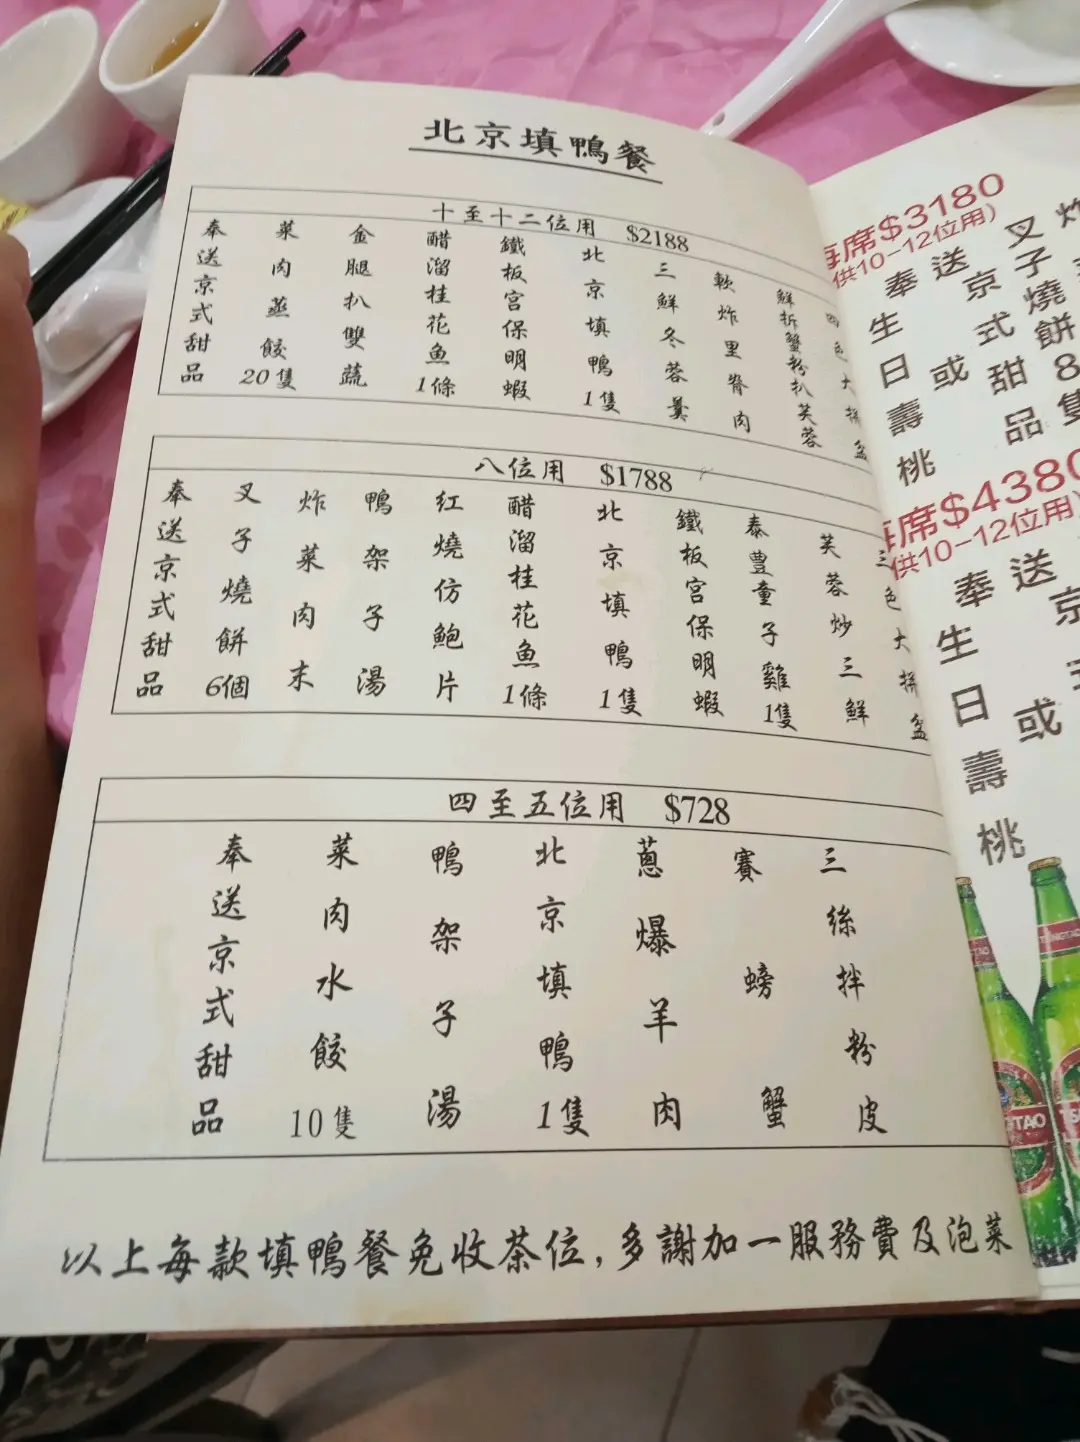 北京填鴨餐
十至十二位用 $2188
四色大拼盆
鮮拆蟹粉扒芙蓉
軟炸里脊肉
三鮮冬蓉羹
北京填鴨1隻
鐵板宮保明蝦
醋溜桂花魚1條
金腿扒雙蔬
菜肉蒸餃20隻
奉送京式甜品
八位用 $1788
三色大拼盆
芙蓉炒三鮮
泰豐童子雞1隻
鐵板宮保明蝦
北京填鴨1隻
醋溜桂花魚1條
紅燒仿鮑片
鴨架子湯
炸菜肉末
叉子燒餅6個
奉送京式甜品
四至五位用 $728
三絲拌粉皮
賽螃蟹
蔥爆羊肉
北京填鴨1隻
鴨架子湯
菜肉水餃10隻
奉送京式甜品
以上每款填鴨餐免收茶位,多謝加一服務費及泡菜
每席$3180
供10-12位用)
炸
叉子燒餅8隻
送京式甜品
或
奉
生日壽桃
每席$4380
供10-12位用)
京
送
或
奉
生日壽桃
TSINGTAO
TSINGTAO